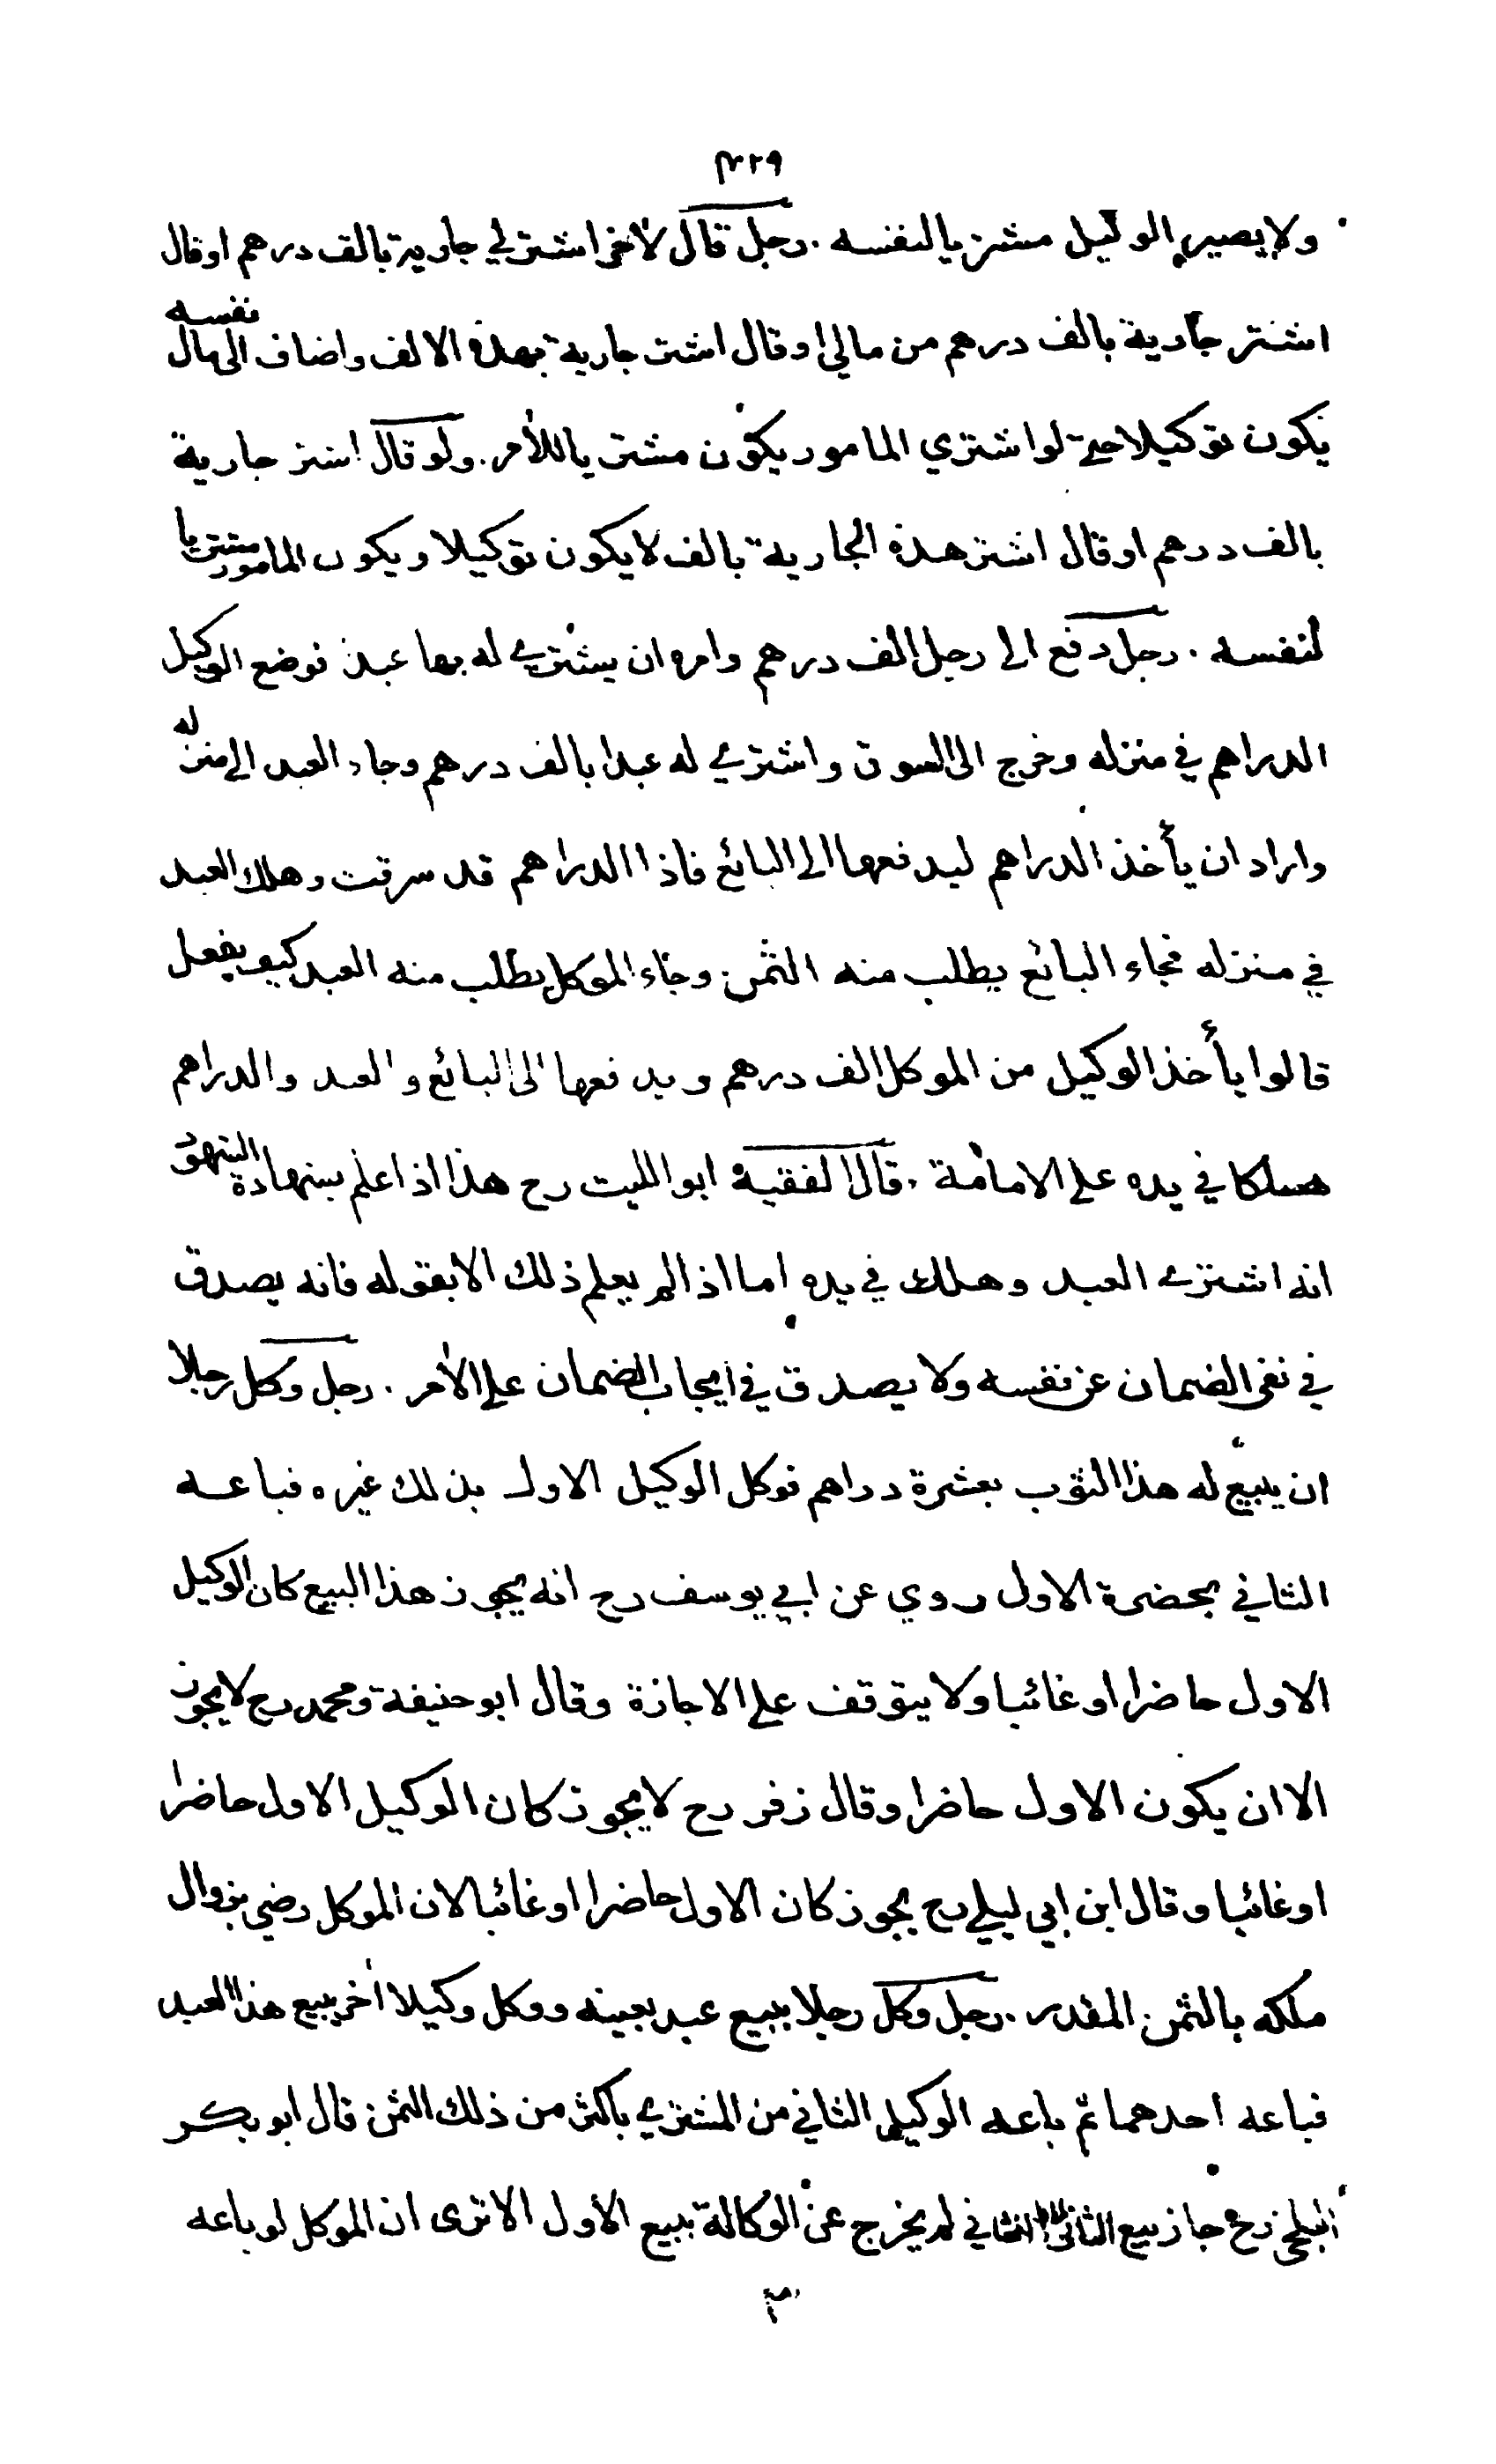 ٣٢٩
ولا يصير الوكيل مشتريا لنفسه . رجل قال لآخر اشتر لي جارية بالف درهم او قال
اشتر جارية بالف درهم من مالي او قال اشتر جارية بهذه الالف واضاف الى مال نفسه
يكون توكيلا حتى لو اشتري المامور يكون مشتريا للآمر . ولو قال اشتر جارية
بالف درهم او قال اشتر هذه الجارية بالف لا يكون توكيلا ويكون المامور مشتريا
لنفسه . رجل دفع الى رجل الف درهم وامره ان يشتري له بها عبد فوضع الوكيل
الدراهم في منزله وخرج الى السوق واشتري له عبدا بالف درهم وجاء العبد الى منزله
واراد ان يأخذ الدراهم ليدفعها الى البائع فاذا الدراهم قد سرقت وهلك العبد
في منزله فجاء البائع يطلب منه الثمن وجاء الموكل يطلب منه العبد كيف يفعل
قالوا يأخذ الوكيل من الموكل الف درهم ويدفعها الى البائع والعبد والدراهم
هلكا في يده على الامانة . قال الفقيه ابو الليث رح هذا اذا علم بشهادة الشهود
انه اشتري العبد وهلك في يده اما اذا لم يعلم ذلك الا بقوله فانه يصدق
في نفي الضمان عن نفسه ولا يصدق في ايجاب الضمان على الآمر . رجل وكل رجلا
ان يبيع له هذا الثوب بعشرة دراهم فوكل الوكيل الاول بذلك غيره فباعه
الثاني بحضرة الاول روي عن ابي يوسف رح انه يجوز هذا البيع كان الوكيل
الاول حاضرا او غائبا ولا يتوقف على الاجازة وقال ابو حنيفة ومحمد رح لا يجوز
الا ان يكون الاول حاضرا وقال زفر رح لا يجوز كان الوكيل الاول حاضرا
او غائبا وقال ابن ابي ليلي رح يجوز كان الاول حاضرا او غائبا لان الموكل رضي بزوال
ملكه بالثمن المقدر . رجل وكل رجلا ببيع عبد بعينه ووكل وكيلا آخر ببيع هذا العبد
فباعه احدهما ثم باعه الوكيل الثاني من المشتري باكثر من ذلك الثمن قال ابو بكر
البلخي رح جاز بيع الثاني لان الثاني لم يخرج عن الوكالة ببيع الاول الا ترى ان الموكل لو باعه